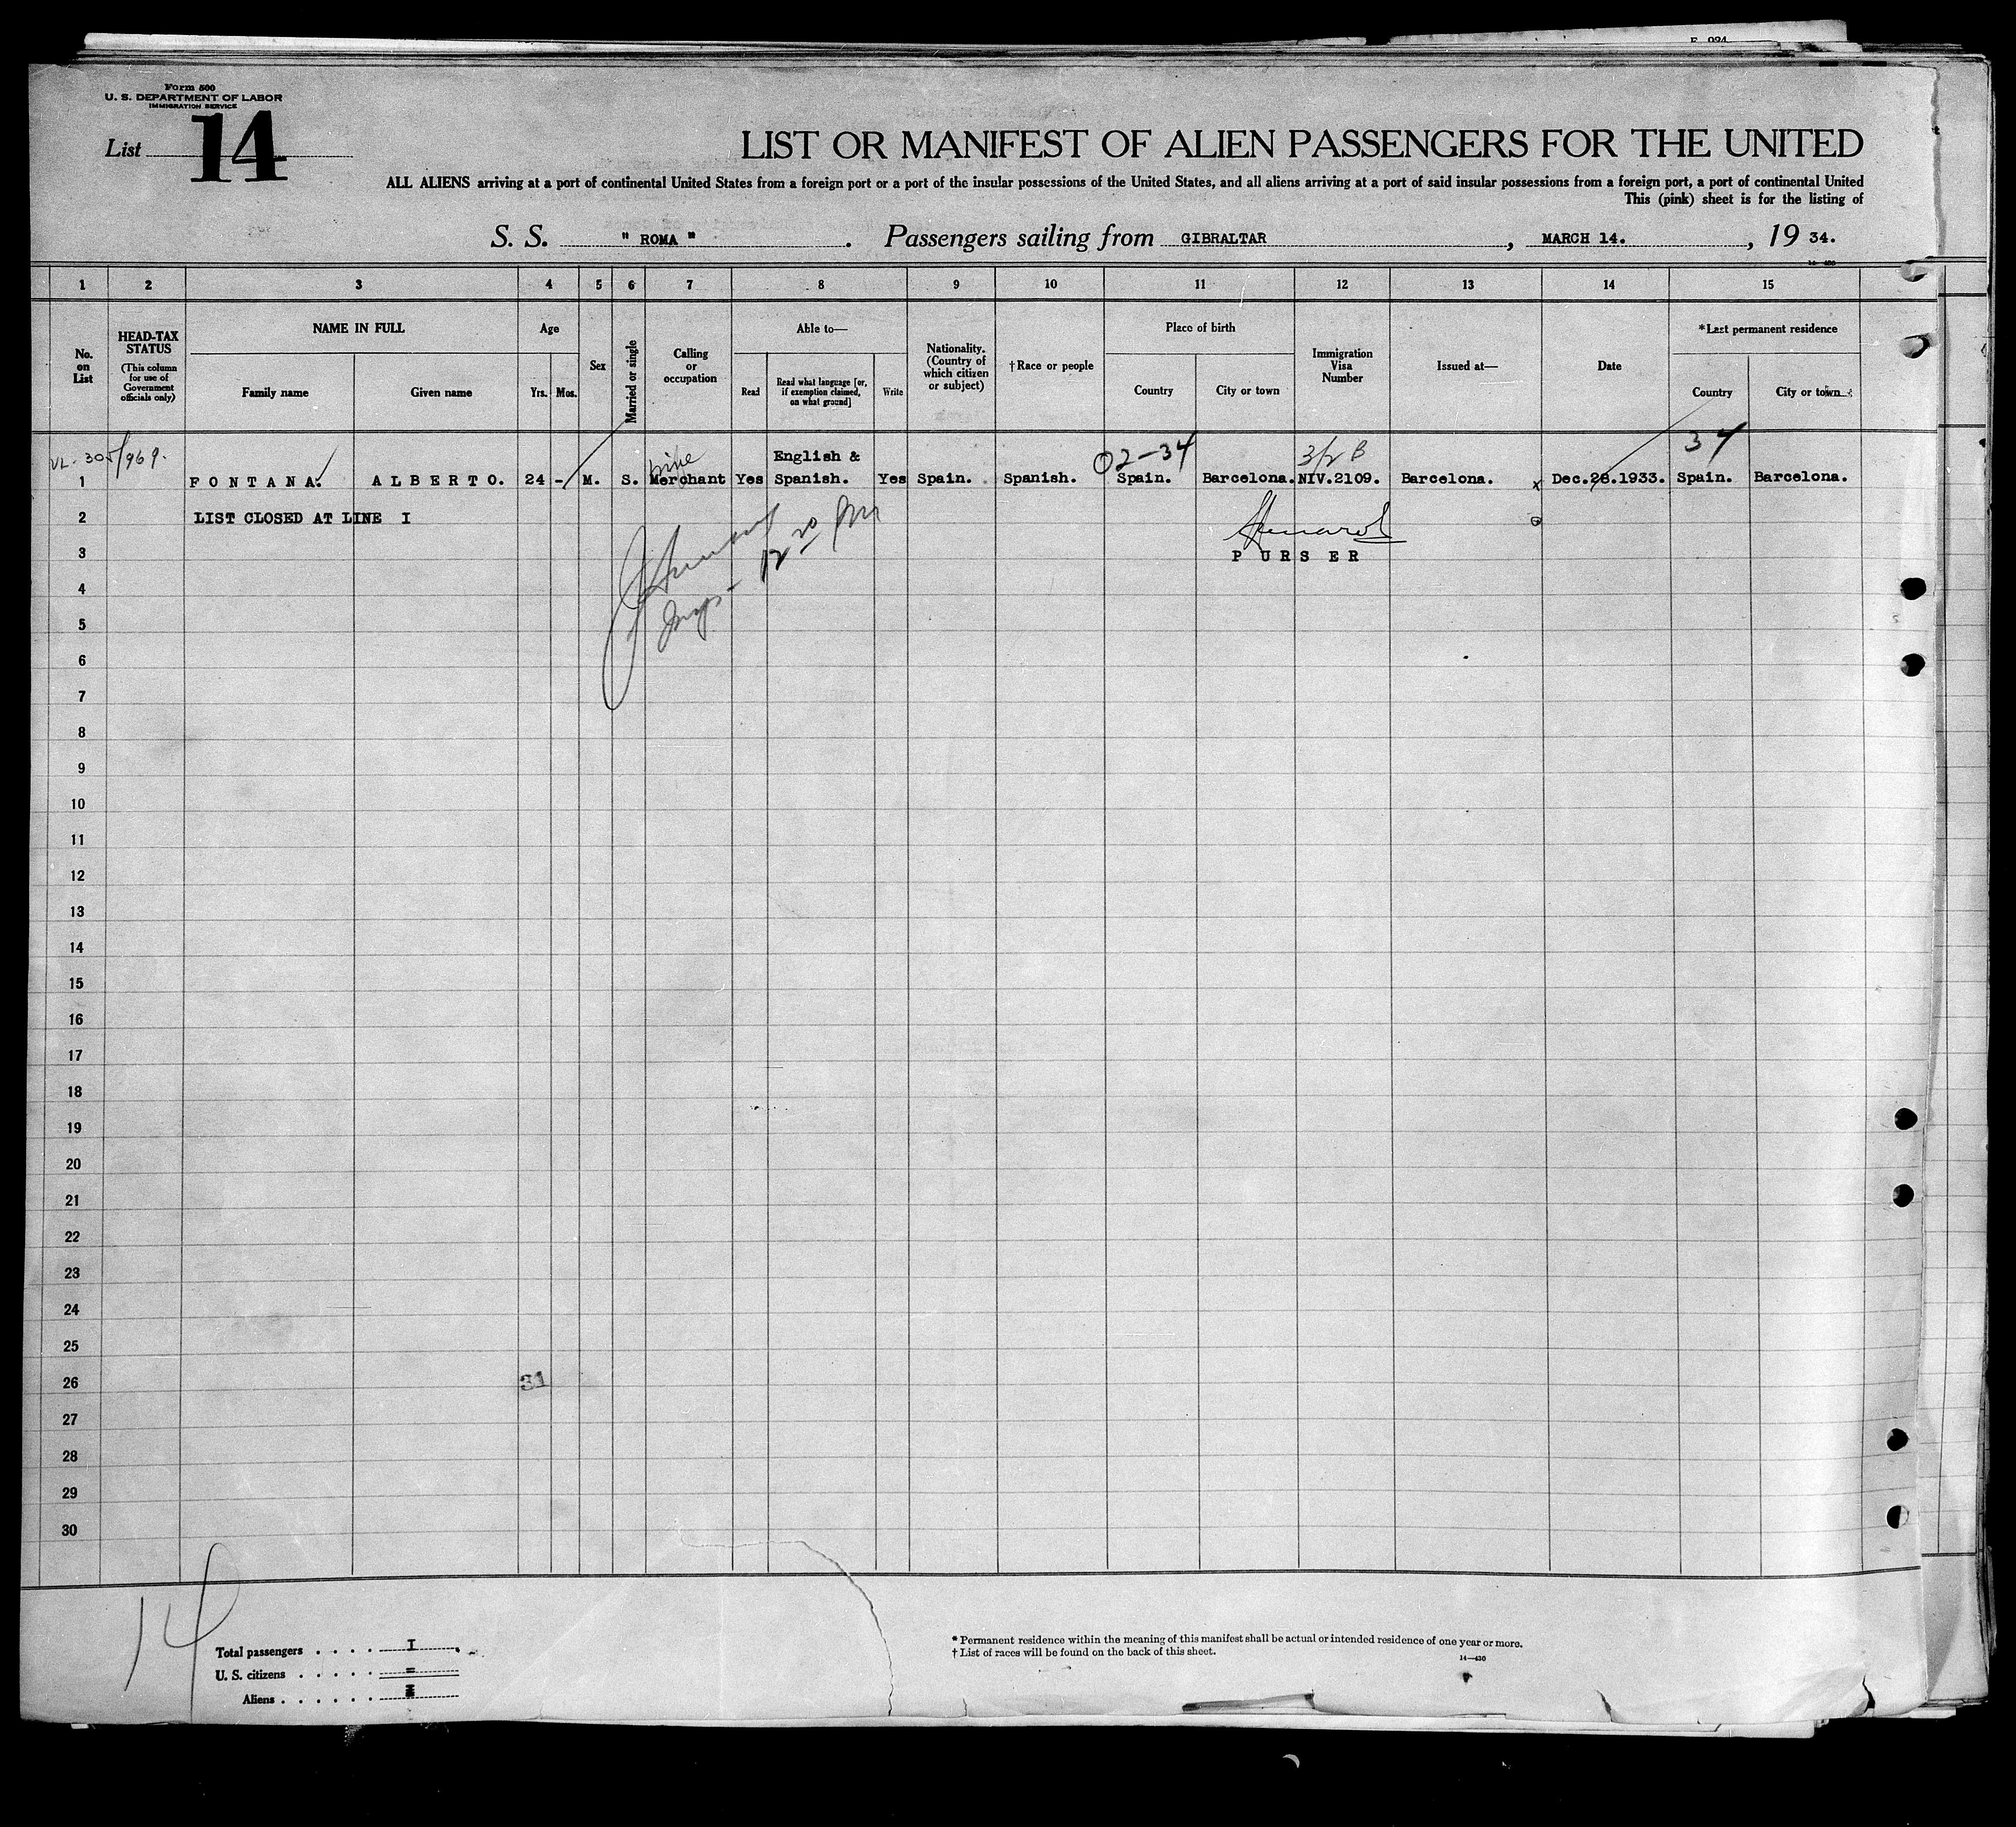 F 924
Form 500
U. S. DEPARTMENT OF LABOR
IMMIGRATION SERVICE
List 14
LIST OR MANIFEST OF ALIEN PASSENGERS FOR THE UNITED
ALL ALIENS arriving at a port of continental United States from a foreign port or a port of the insular possessions of the United States, and all aliens arriving at a port of said insular possessions from a foreign port, a port of continental United
This (pink) sheet is for the listing of
S. S. " ROMA " . Passengers sailing from GIBRALTAR , MARCH 14. , 19 34.
14—430
1 2 3 4 5 6 7 8 9 10 11 12 13 14 15
No. on List
HEAD-TAX STATUS
(This column for use of Government officials only)
NAME IN FULL
Family name Given name
Age
Yrs. Mos.
Sex
Married or single
Calling or occupation
Able to—
Read
Read what language [or, if exemption claimed, on what ground]
Write
Nationality. (Country of which citizen or subject)
†Race or people
Place of birth
Country City or town
Immigration Visa Number
Issued at—
Date
*Last permanent residence
Country City or town
VL-305/969. 02-34 3/2 B 34
1 FONTANA. ALBERTO. 24 - M. S. Merchant Yes English & Spanish. Yes Spain. Spanish. Spain. Barcelona. NIV.2109. Barcelona. x Dec.28.1933. Spain. Barcelona.
2 LIST CLOSED AT LINE I
Insp- 12 20 PM
3 PURSER
4
5
6
7
8
9
10
11
12
13
14
15
16
17
18
19
20
21
22
23
24
25
26 31
27
28
29
30
14
Total passengers . . . . I
U. S. citizens . . . . . -
Aliens . . . . . . I
* Permanent residence within the meaning of this manifest shall be actual or intended residence of one year or more.
† List of races will be found on the back of this sheet.
14—430